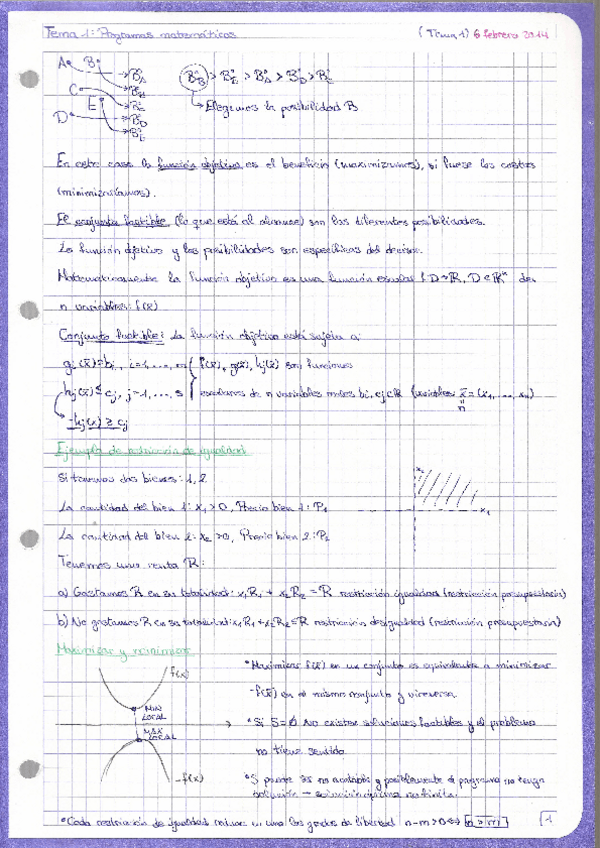 Tema 1: Programas matemáticos (Tema 1) 6 febrero 2014
A B
C
E
D
Elegimos la posibilidad B
En este caso la función objetivo es el beneficio (maximizamos), si fuese los costes
(minimizaríamos).
El conjunto factible (lo que está al alcance) son las diferentes posibilidades.
La función objetivo y las posibilidades son específicas del decisor.
Matemáticamente la función objetivo es una función escalar f: D→ℝ, D⊂ℝⁿ de
n variables: f(x̄)
Conjunto factible: La función objetivo está sujeta a:
gi(x̄)=bi, i=1,..., m f(x̄), g(x̄), hj(x̄) son funciones
hj(x̄)≤cj, j=1,..., s escalares de n variables reales bi, cj∈ℝ (variables x̄=(x₁, ..., xn)
-hj(x)≥cj
Ejemplo de restricción de igualdad
Si tenemos dos bienes: 1, 2
La cantidad del bien 1: x₁>0, Precio bien 1: P₁
x₂
x₁
La cantidad del bien 2: x₂>0, Precio bien 2: P₂
Tenemos una renta R:
a) Gastamos R en su totalidad: x₁P₁ + x₂P₂ = R restricción igualdad (restricción presupuestaria)
b) No gastamos R en su totalidad: x₁P₁+x₂P₂≤R restricción desigualdad (restricción presupuestaria)
Maximizar y minimizar
f(x)
MIN
LOCAL
MAX
LOCAL
-f(x)
*Maximizar f(x̄) en un conjunto es equivalente a minimizar
-f(x̄) en el mismo conjunto y viceversa
*Si S=∅ No existen soluciones factibles y el problema
no tiene sentido
*S puede ser no acotado y posiblemente el programa no tenga
solución
*Cada restricción de igualdad reduce en uno los grados de libertad n-m>0⇔ n>m
1